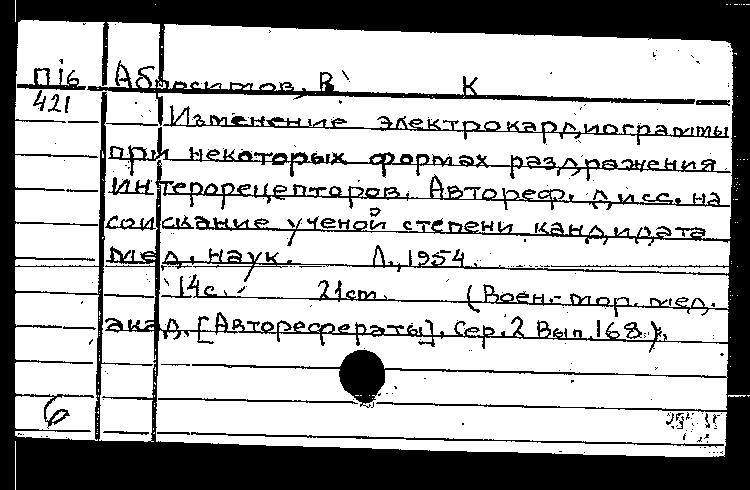 Пiб Абросимов, В. К
421 Изменение электрокардиограммы
при некоторых формах раздражения
интерорецепторов. Автореф. дисс. на
соискание ученой степени кандидата
мед. наук. Л., 1954.
14с. 21cm. (Воен.-мор. мед.
акад. [Авторефераты]. Сер. 2 Вып. 168.).
6